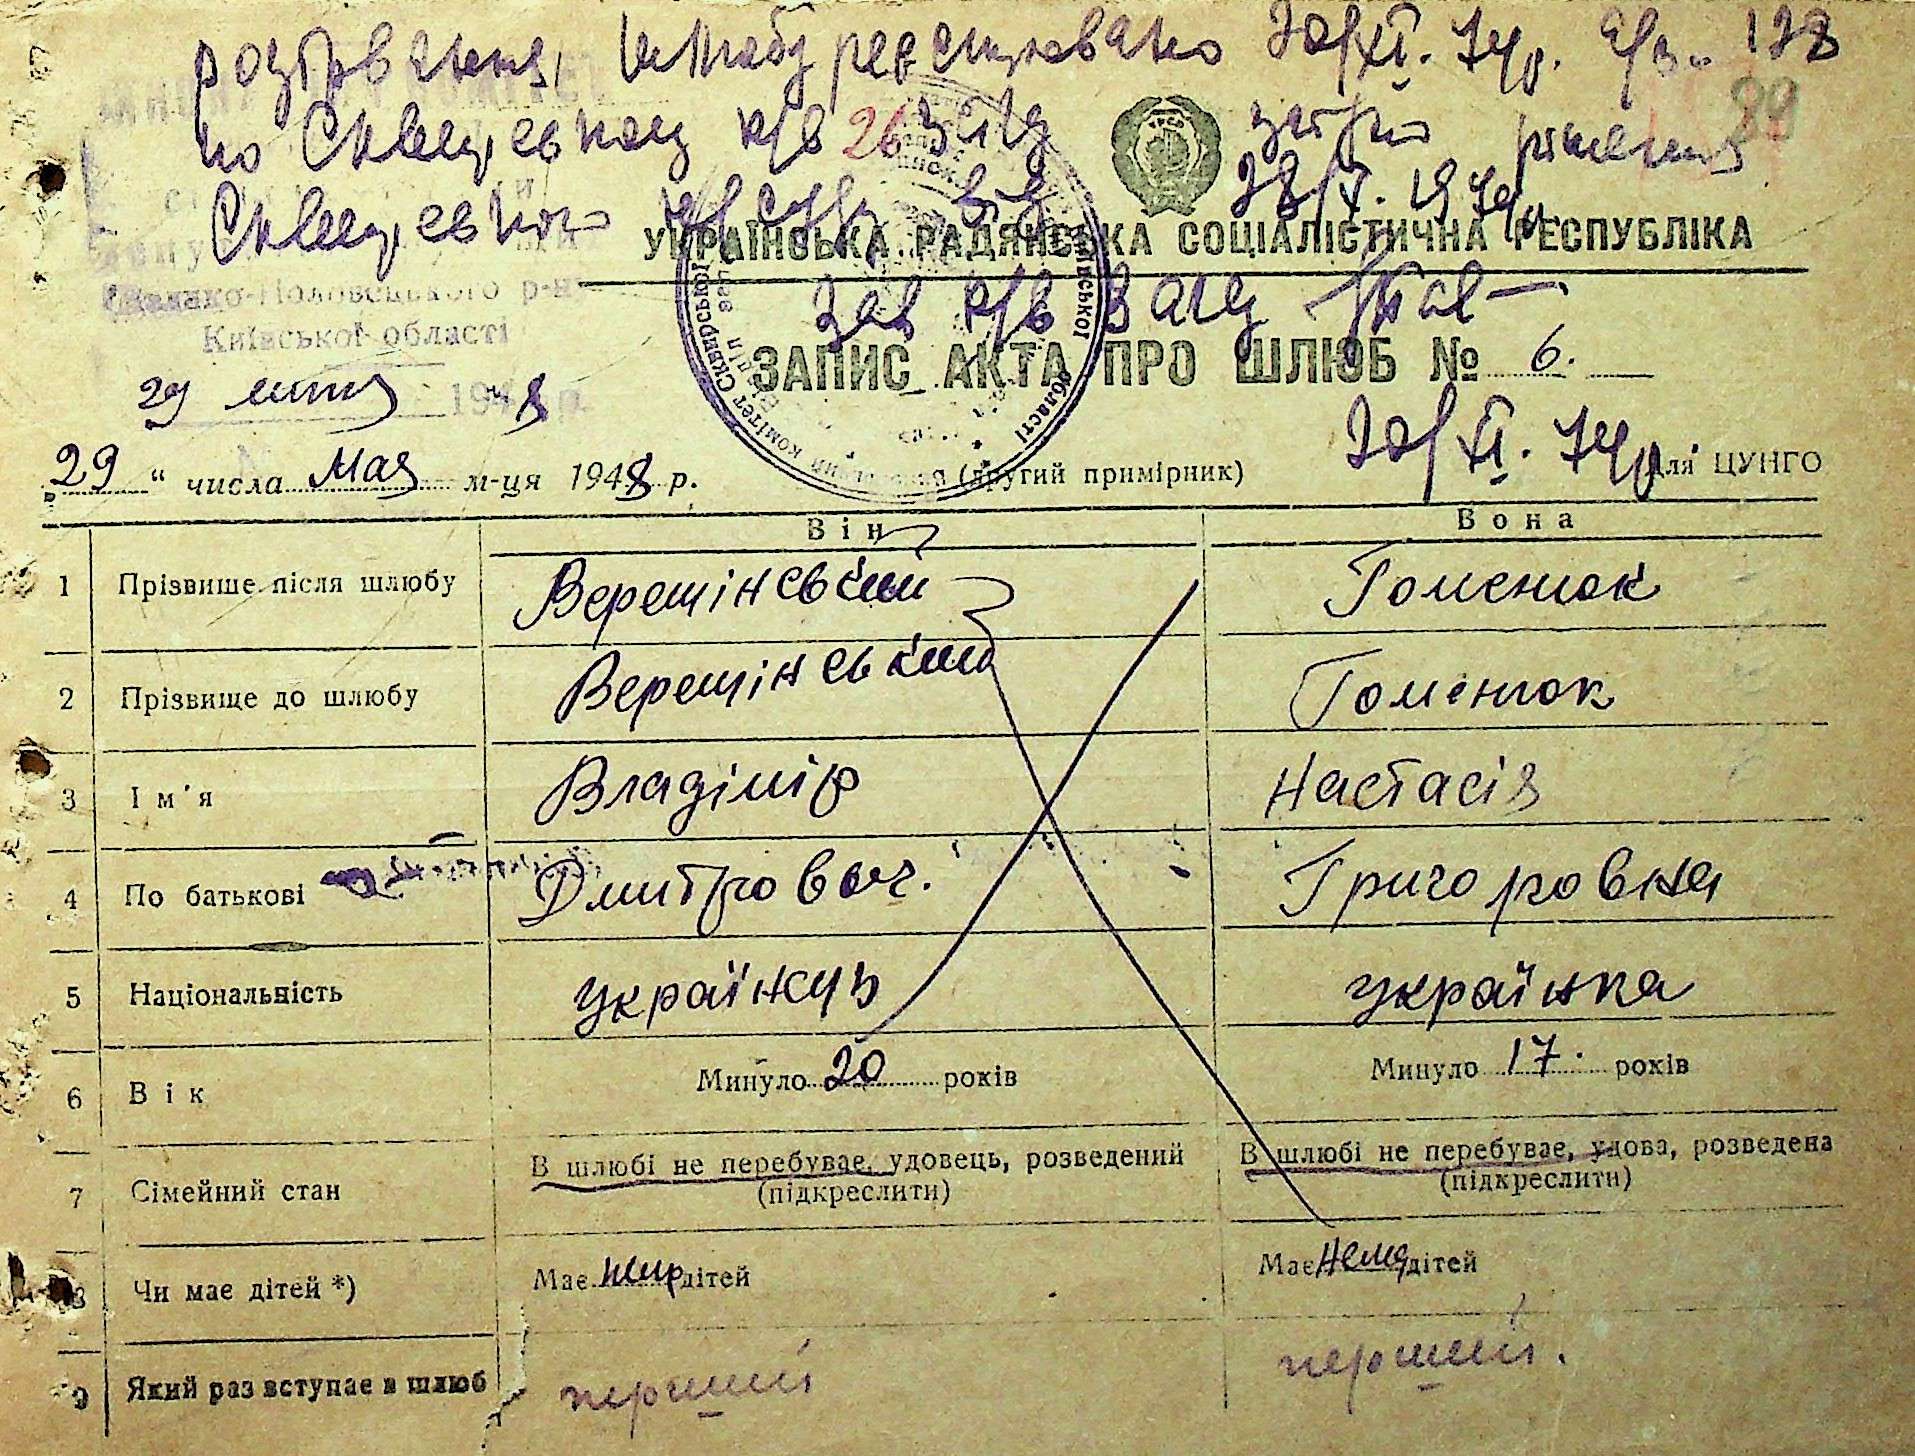 розірвання шлюбу реєстровано 20/XI. 74р. а/з. 128
по Сквирському р/в загс 89
згідно рішення
Сквирського
УКРАЇНСЬКА РАДЯНСЬКА СОЦІАЛІСТИЧНА РЕСПУБЛІКА
зав р/в Загс
Київської області
ЗАПИС АКТА ПРО ШЛЮБ № 6.
29 1948 р.
20/XI. 74р.
"29" числа Мая м-ця 1948 р. (другий примірник) Для ЦУНГО
Він Вона
1 Прізвише після шлюбу Верещінський Гоменюк
2 Прізвище до шлюбу Верещінський Гоменюк
3 Ім'я Владімір Настасія
4 По батькові Дмитрович. Григоровна
5 Національність українец українка
6 Вік Минуло 20 років Минуло 17. років
7 Сімейний стан В шлюбі не перебуває, удовець, розведений (підкреслити) В шлюбі не перебуває, удова, розведена (підкреслити)
8 Чи має дітей *) Має дітей Має нема дітей
9 Який раз вступає в шлюб перший перший.